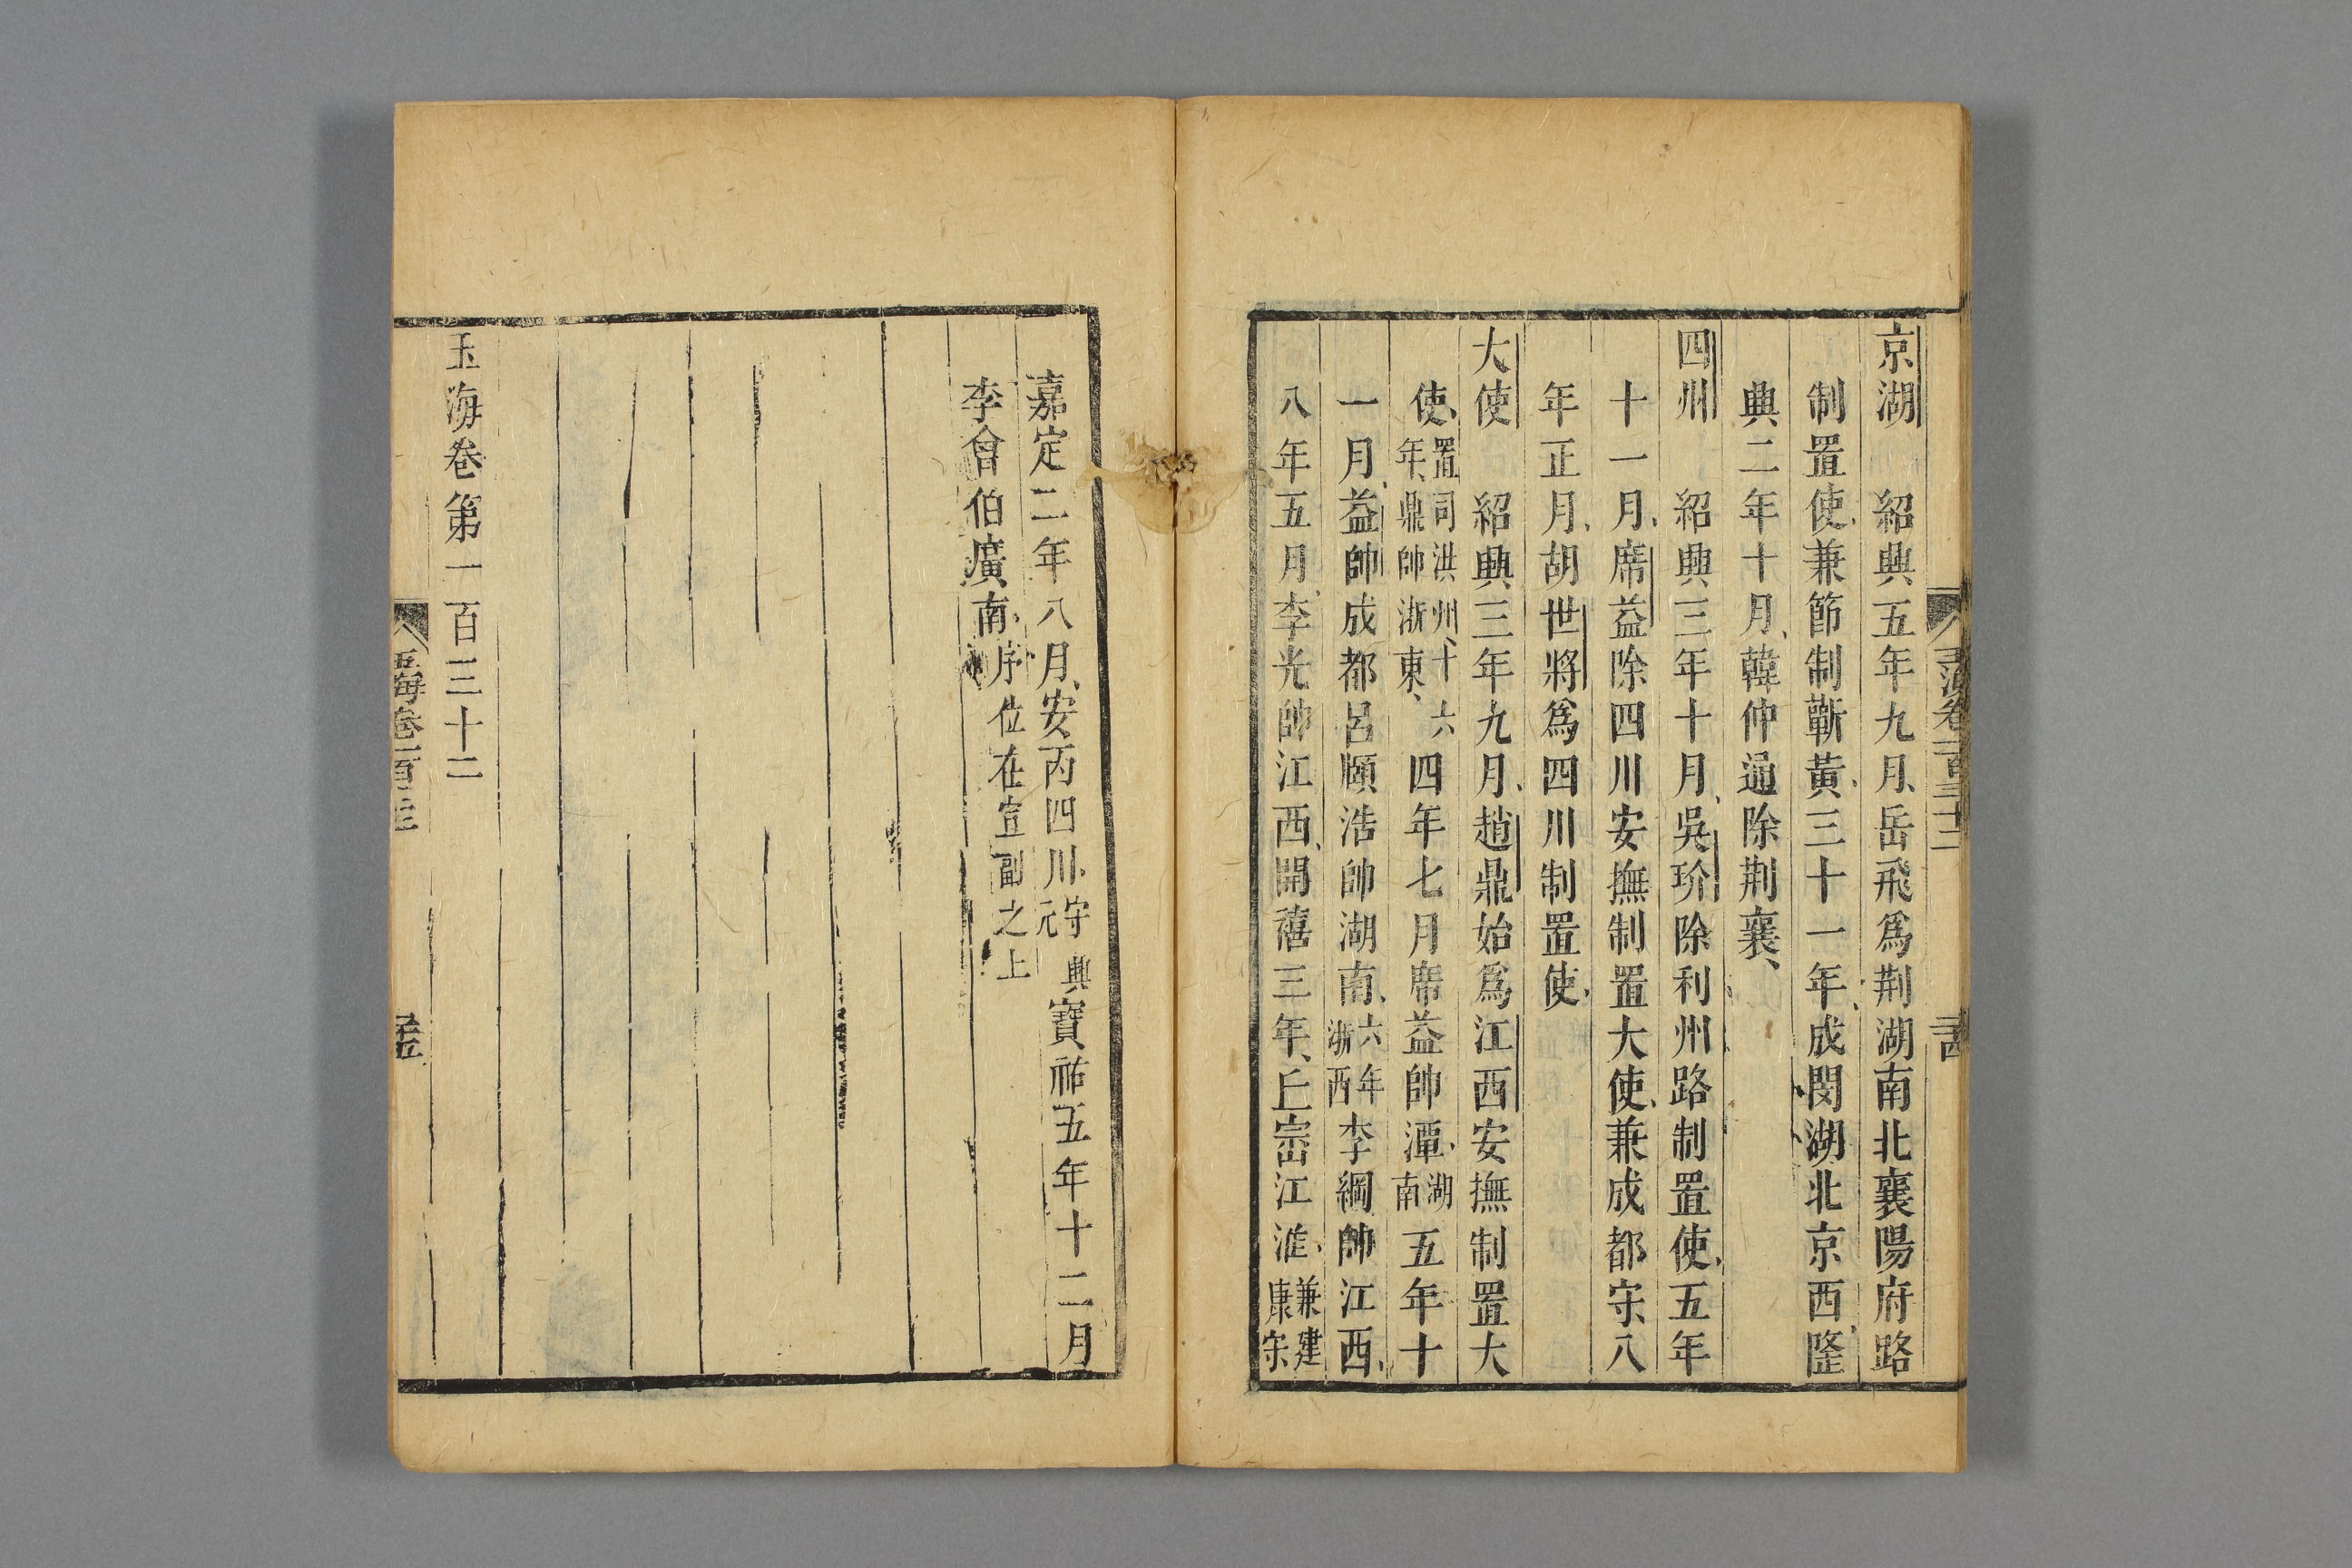 京湖　紹興五年九月岳飛爲荆湖南北襄陽府路
制置使兼節制蘄黃三十一年成閔湖北京西隆
興二年十月韓仲通除荆襄
四州　紹興三年十月吳玠除利州路制置使五年
十一月席益除四川安撫制置大使兼成都守八
年正月胡世將爲四川制置使
大使　紹興三年九月趙鼎始爲江西安撫制置大
使置司洪州十六年鼎帥浙東四年七月席益帥潭湖南五年十
一月益帥成都呂頤浩帥湖南六年浙西李綱帥江西
八年五月李光帥江西開禧三年丘崈江淮兼建康守
嘉定二年八月安丙四川守興元寶祐五年十二月
李曾伯廣南序位在宣副之上
玉海卷第一百三十二
玉海卷一百三十二